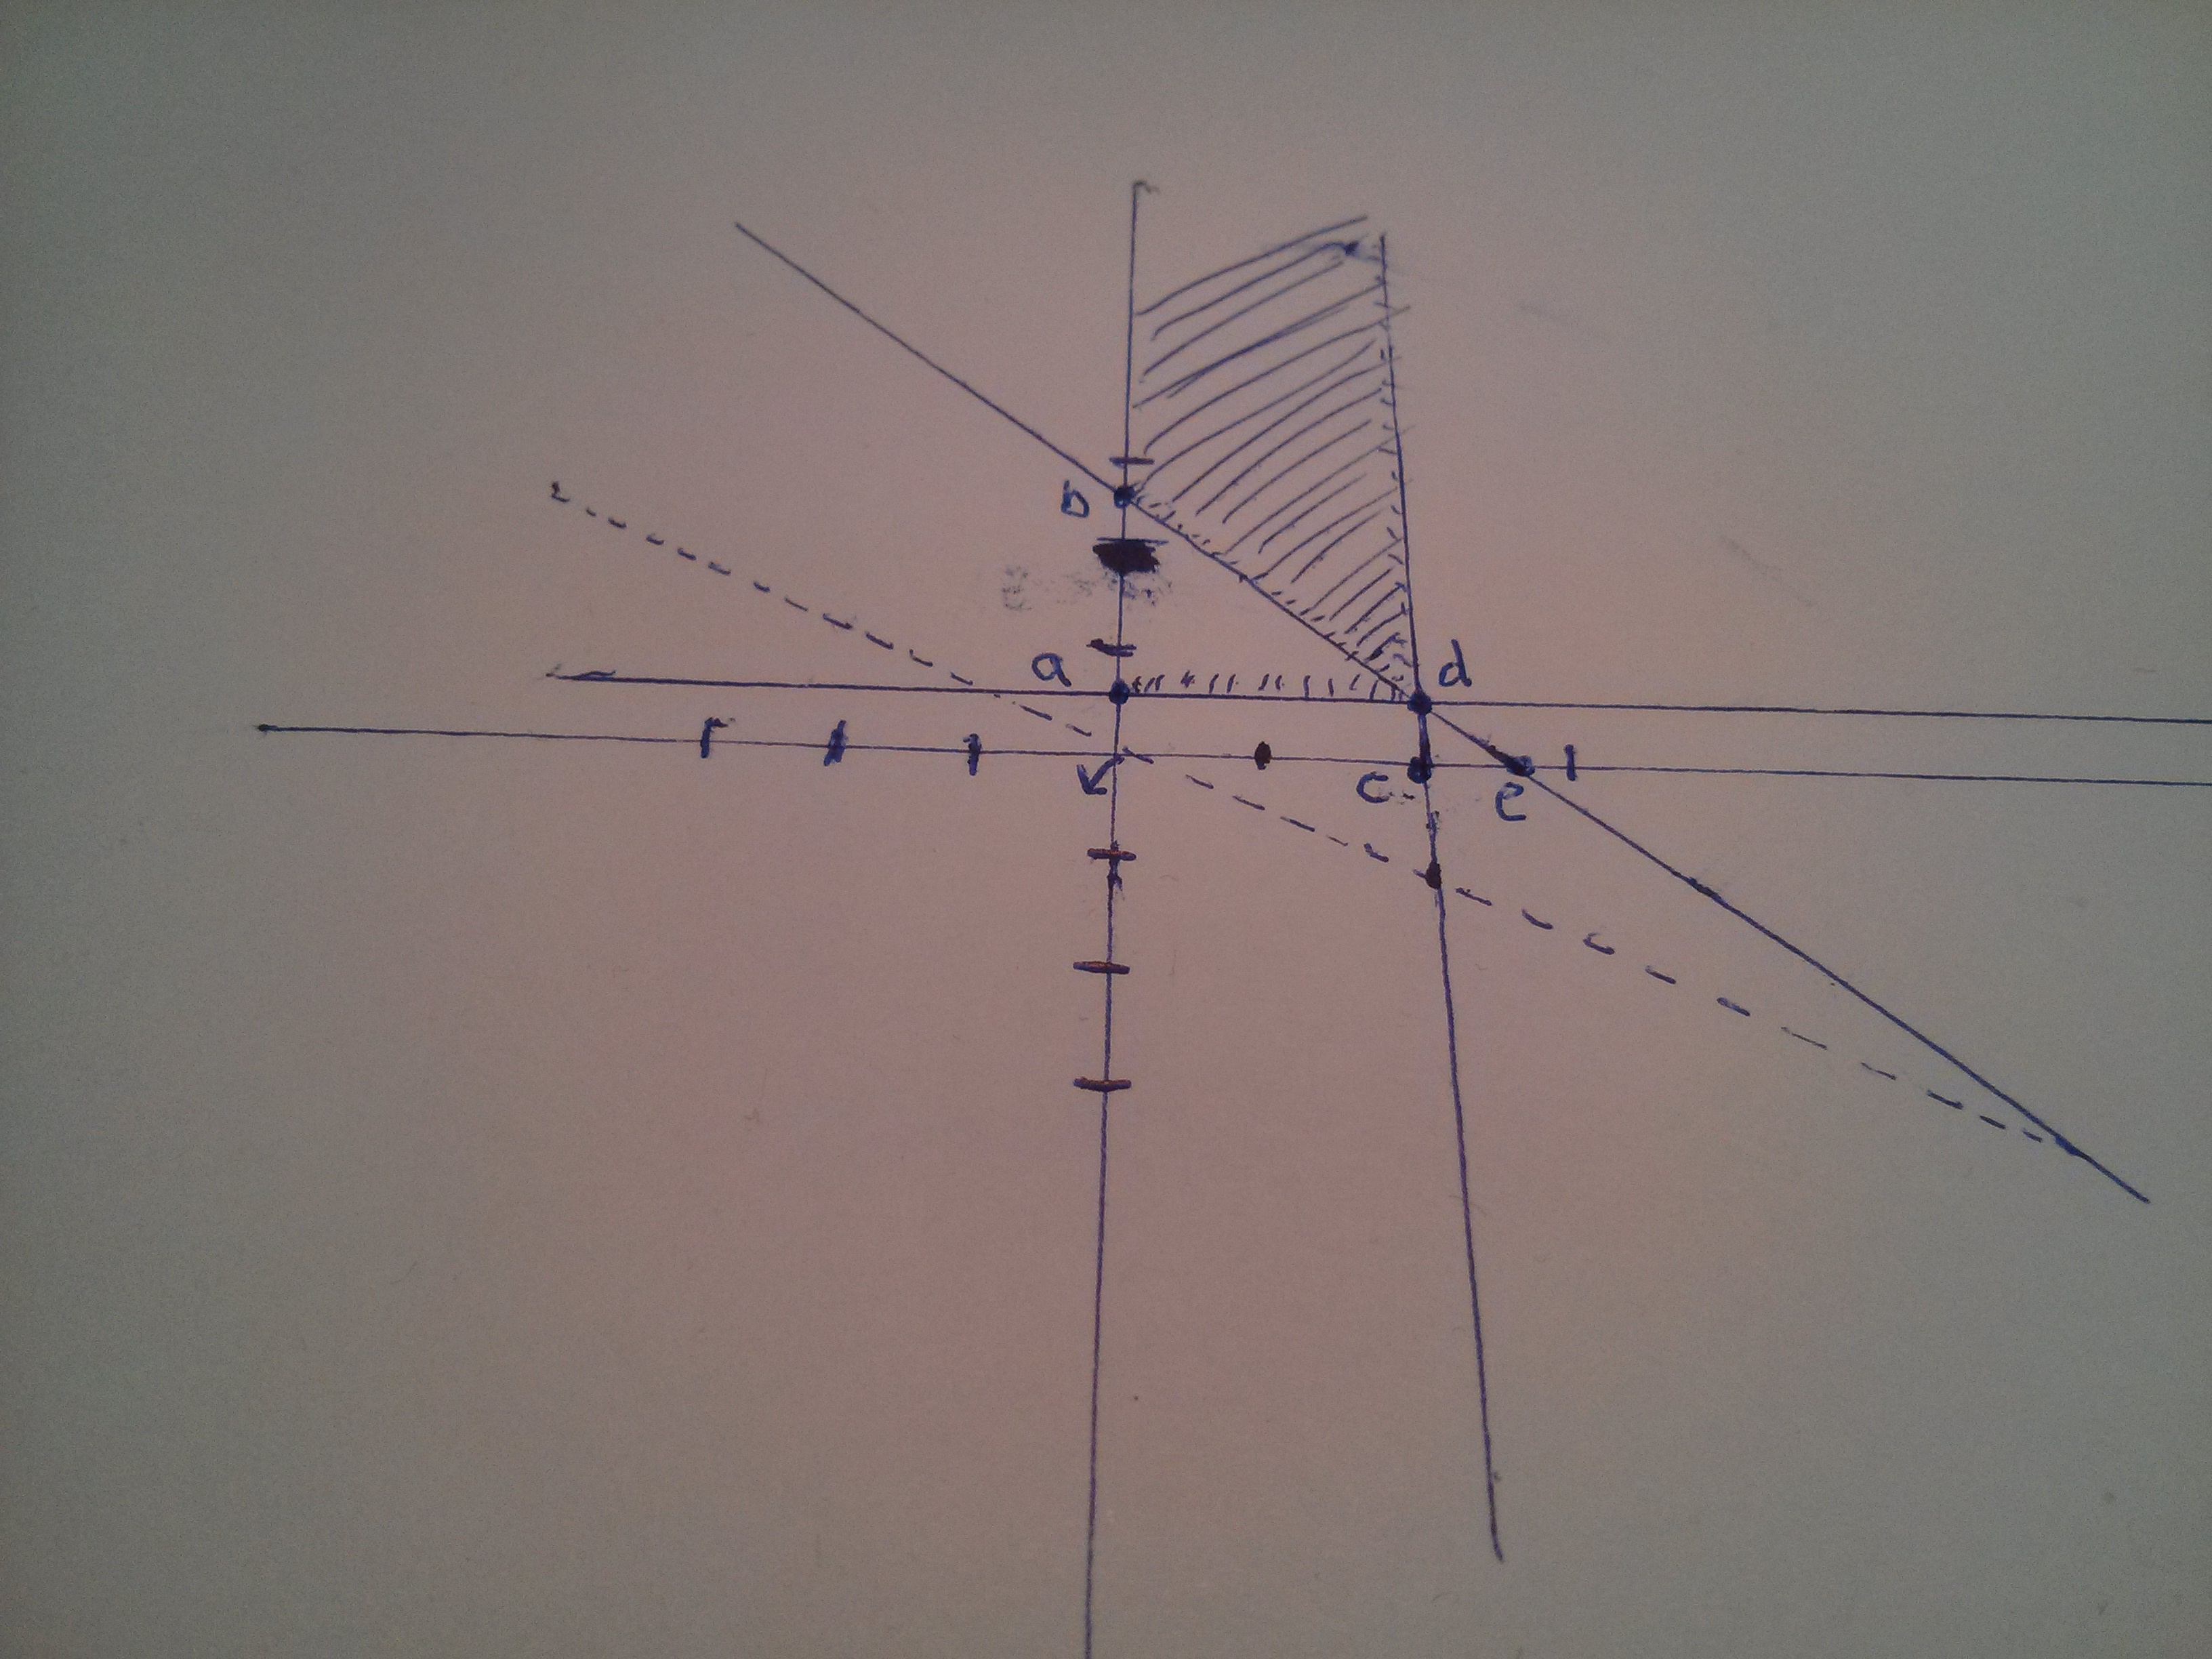 b
a
d
c
e